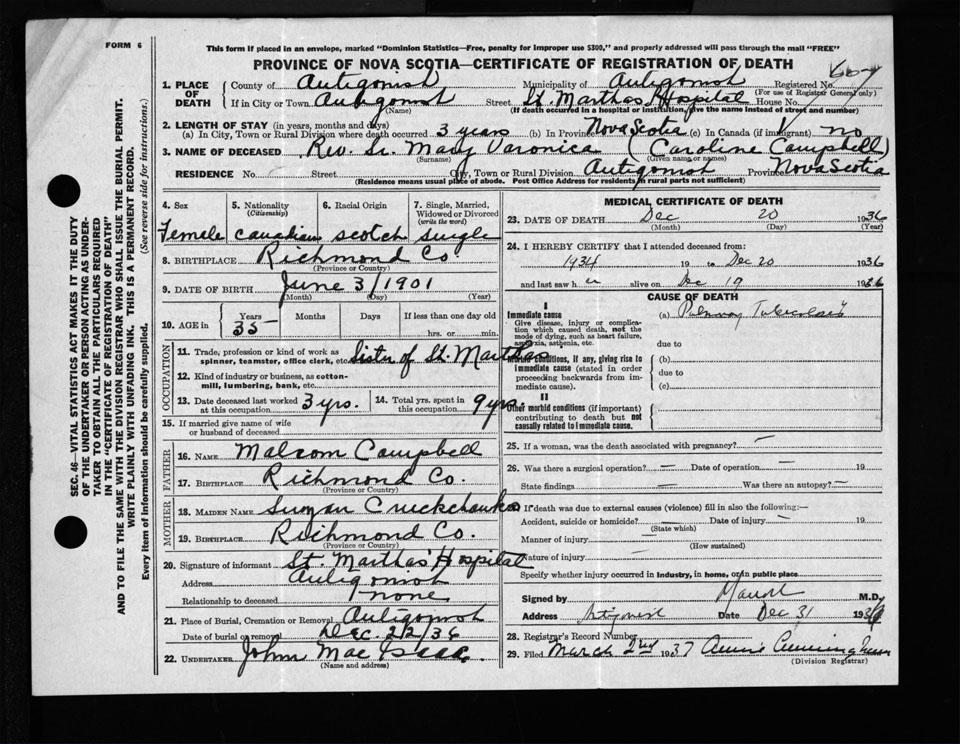 FORM 6
This form if placed in an envelope, marked "Dominion Statistics—Free, penalty for improper use $300," and properly addressed will pass through the mail "FREE"
PROVINCE OF NOVA SCOTIA—CERTIFICATE OF REGISTRATION OF DEATH
1. PLACE OF DEATH
County of Antigonish Municipality of Antigonish Registered No.
(For use of Registrar General only)
If in City or Town Antigonish Street St. Marthas Hospital House No.
(Name) (If death occurred in a hospital or institution, give the name instead of street and number)
2. LENGTH OF STAY (in years, months and days)
(a) In City, Town or Rural Division where death occurred 3 years (b) In Province Nova Scotia (c) In Canada (if immigrant) no
3. NAME OF DECEASED Rev. Sr. Mary Varonica (Caroline Campbell)
(Surname) (Given name or names)
RESIDENCE No. Street City, Town or Rural Division Antigonist Province Nova Scotia
(Residence means usual place of abode. Post Office Address for residents in rural parts not sufficient)
SEC. 46—VITAL STATISTICS ACT MAKES IT THE DUTY
OF THE UNDERTAKER OR PERSON ACTING AS UNDER-
TAKER TO OBTAIN ALL THE PARTICULARS REQUIRED
IN THE "CERTIFICATE OF REGISTRATION OF DEATH"
AND TO FILE THE SAME WITH THE DIVISION REGISTRAR WHO SHALL ISSUE THE BURIAL PERMIT.
WRITE PLAINLY WITH UNFADING INK. THIS IS A PERMANENT RECORD.
Every item of information should be carefully supplied. (See reverse side for instructions.)
4. Sex
Female
5. Nationality
(Citizenship)
Canadian
6. Racial Origin
Scotch
7. Single, Married,
Widowed or Divorced
(write the word)
single
8. BIRTHPLACE Richmond Co.
(Province or Country)
9. DATE OF BIRTH June 3/1901
(Month) (Day) (Year)
10. AGE in Years Months Days If less than one day old
35 hrs. or min.
OCCUPATION
11. Trade, profession or kind of work as
spinner, teamster, office clerk, etc. Sister of St. Marthas
12. Kind of industry or business, as cotton-
mill, lumbering, bank, etc.
13. Date deceased last worked
at this occupation 3 yrs.
14. Total yrs. spent in
this occupation 9 yrs.
15. If married give name of wife
or husband of deceased
FATHER
16. NAME Malcom Campbell
17. BIRTHPLACE Richmond Co.
(Province or Country)
MOTHER
18. MAIDEN NAME
19. BIRTHPLACE Richmond Co.
(Province or Country)
20. Signature of informant St. Marthas Hospital
Address Antigonish
Relationship to deceased none
21. Place of Burial, Cremation or Removal Antigonish
Date of burial or removal Dec. 22/36
22. UNDERTAKER John Mac Isaac.
(Name and address)
MEDICAL CERTIFICATE OF DEATH
23. DATE OF DEATH Dec 20 1936
(Month) (Day) (Year)
24. I HEREBY CERTIFY that I attended deceased from:
1934 19 to Dec 20 1936
and last saw h alive on Dec 19 1936
CAUSE OF DEATH
I
Immediate cause
Give disease, injury or complica-
tion which caused death, not the
mode of dying, such as heart failure,
asphyxia, asthenia, etc.
(a) Pulmonary Tuberculosis
due to
Morbid conditions, if any, giving rise to
immediate cause (stated in order
proceeding backwards from im-
mediate cause).
(b)
due to
(c)
II
Other morbid conditions (if important)
contributing to death but not
causally related to immediate cause.
25. If a woman, was the death associated with pregnancy? —
26. Was there a surgical operation? — Date of operation — 19
State findings — Was there an autopsy? —
27. If death was due to external causes (violence) fill in also the following:—
Accident, suicide or homicide? — Date of injury — 19
(State which)
Manner of injury —
(How sustained)
Nature of injury —
Specify whether injury occurred in industry, in home, or in public place
Signed by M.D.
Address Antigonish Date Dec 31 1936
28. Registrar's Record Number
29. Filed March 2nd 1937 Annie Cunningham
(Division Registrar)